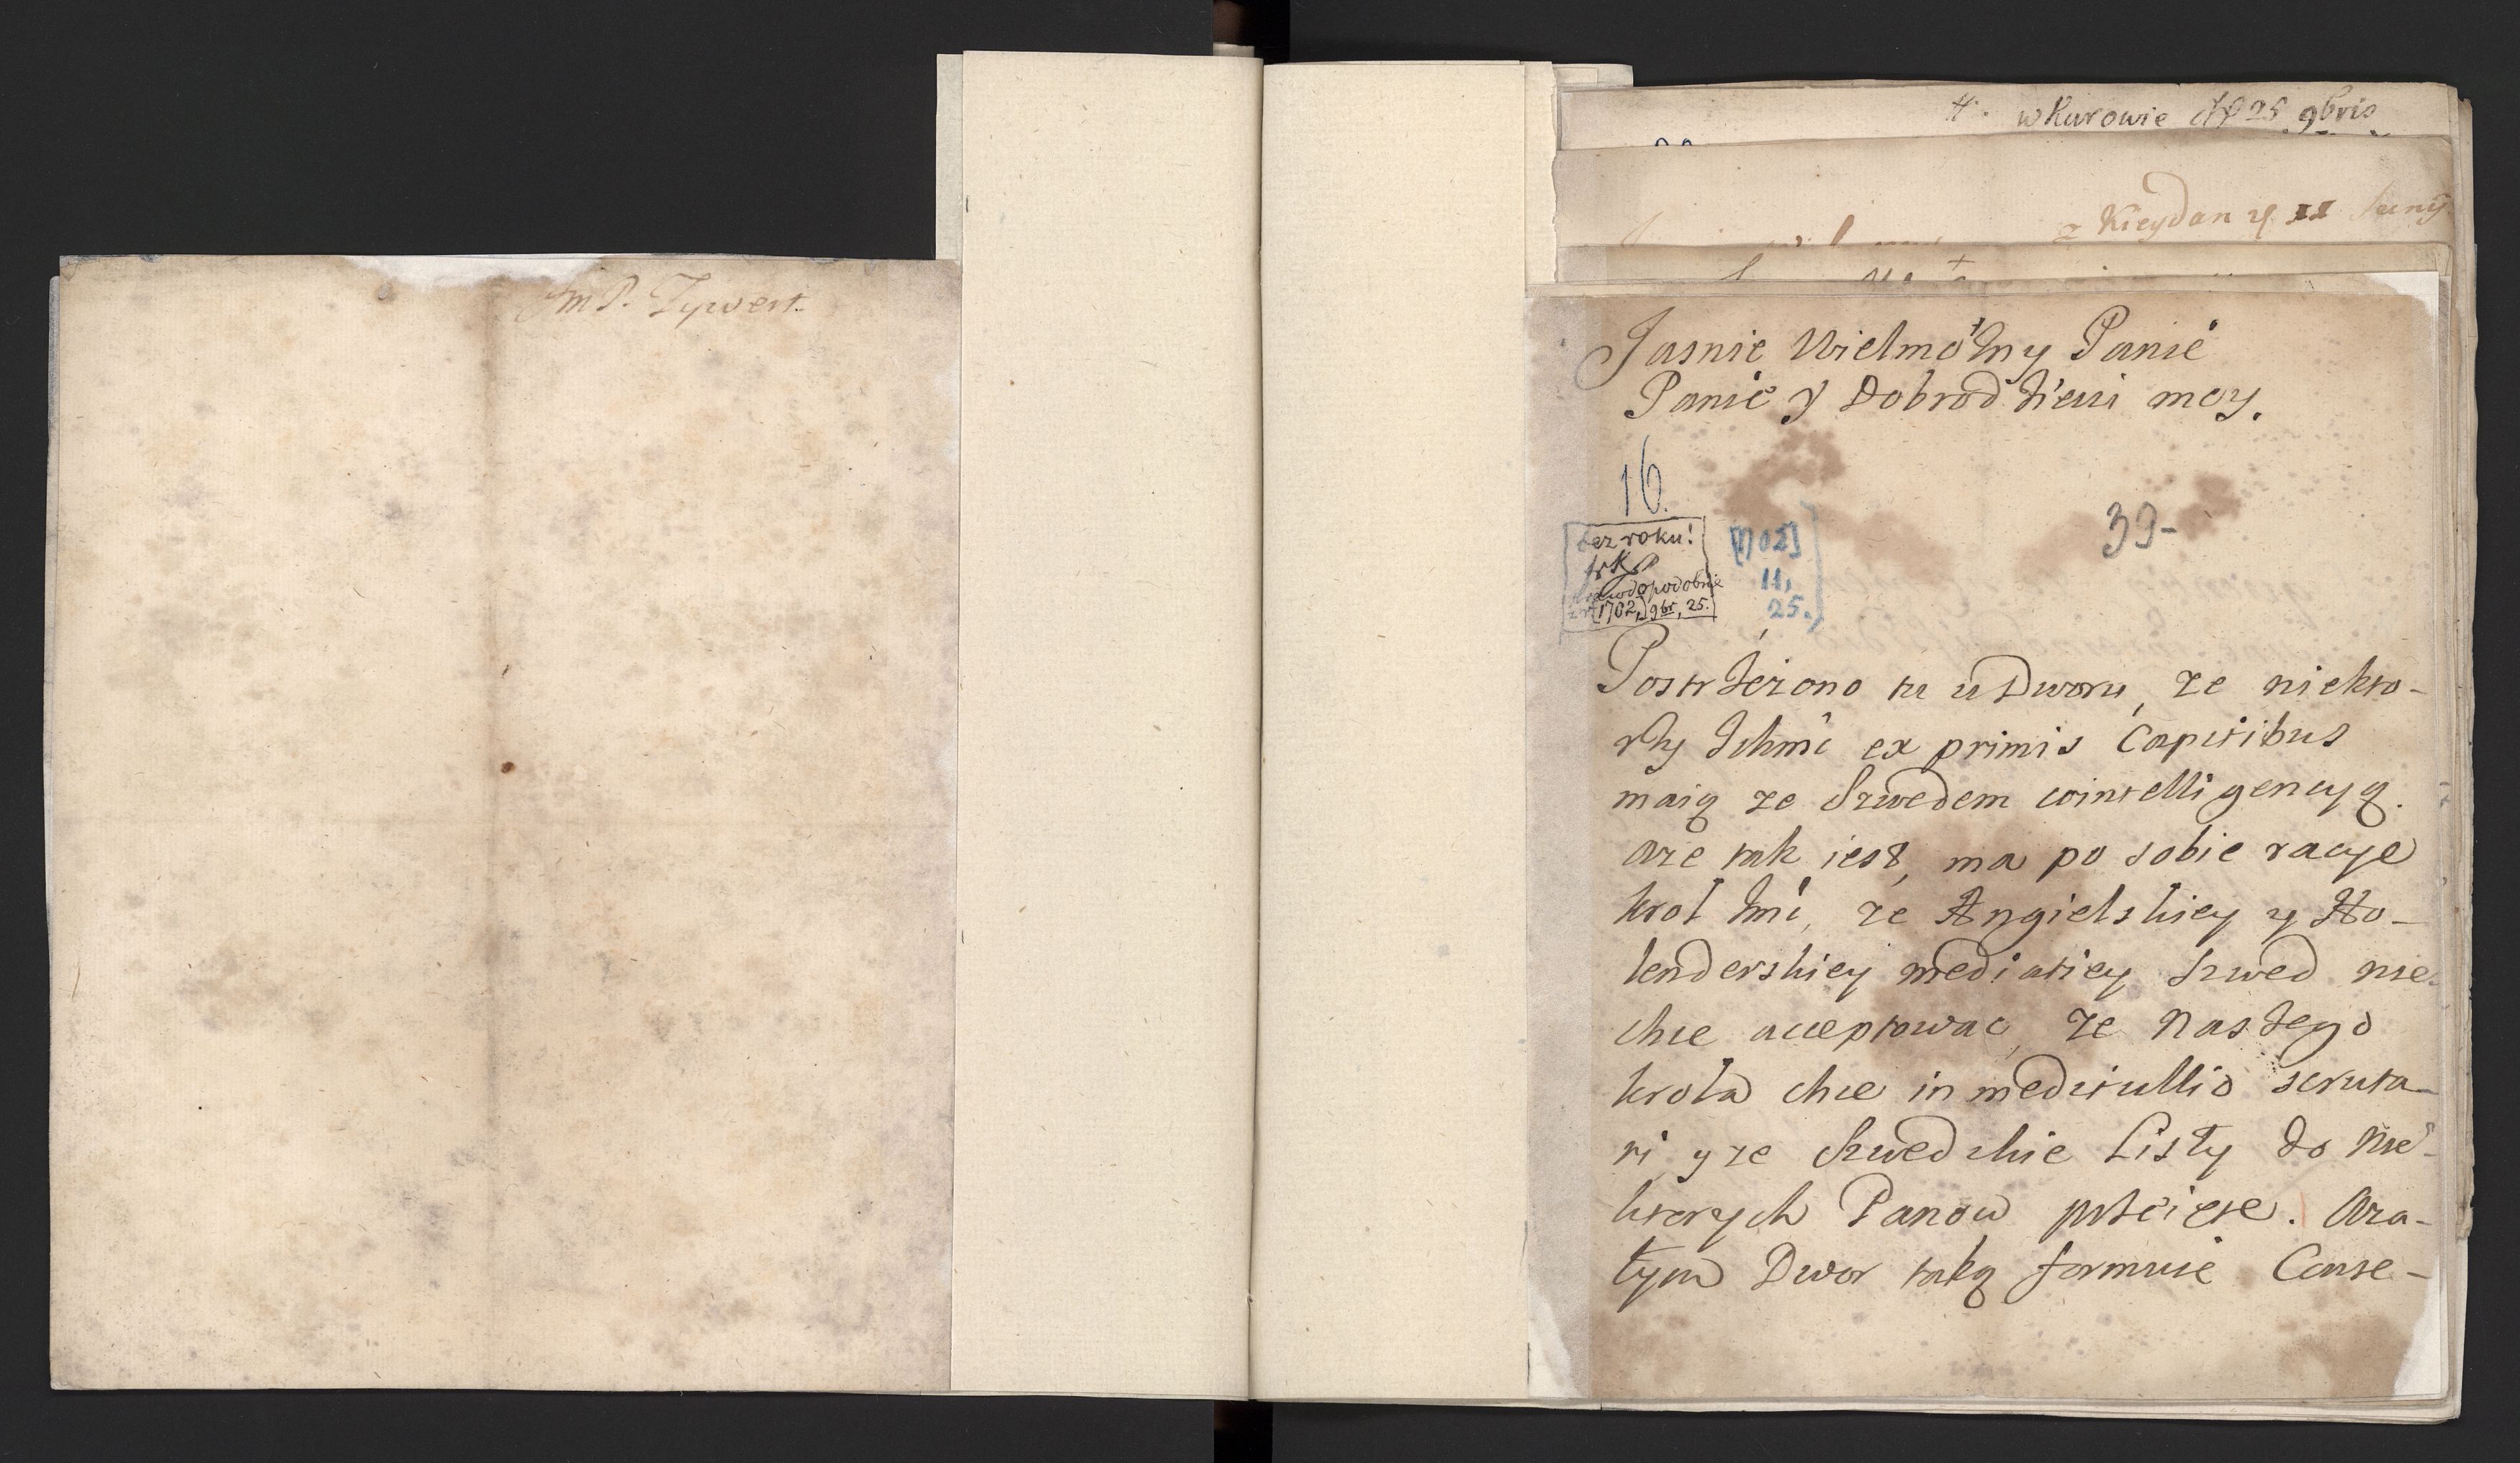 Jm P. Tywert.
w Kurowie d 25 9bris
z Kieydan 11 Junij
Jasnie Wielmożny Panie
Panie y Dobrodzieiu moy.
16.
39-
bez roku!
prawdopodobnie
z r. [1702,] 9br, 25.
[1702]
11,
25.
Postrzeżono tu u Dworu, ze niekto-
rzy Ichmć ex primis Capitibus
maią ze Szwedem cointelligencyą.
aze tak iest, ma po sobie racye
krol Jmć, ze Angielskiey y Ho-
lenderskiey mediatiey Szwed nie
chce acceptowac, ze naszego
krola chce in meditullio scruta-
ri, y ze Szwedzkie Listy do nie-
ktorych Panow przeięte. aza-
tym Dwor taką formuie Conse-